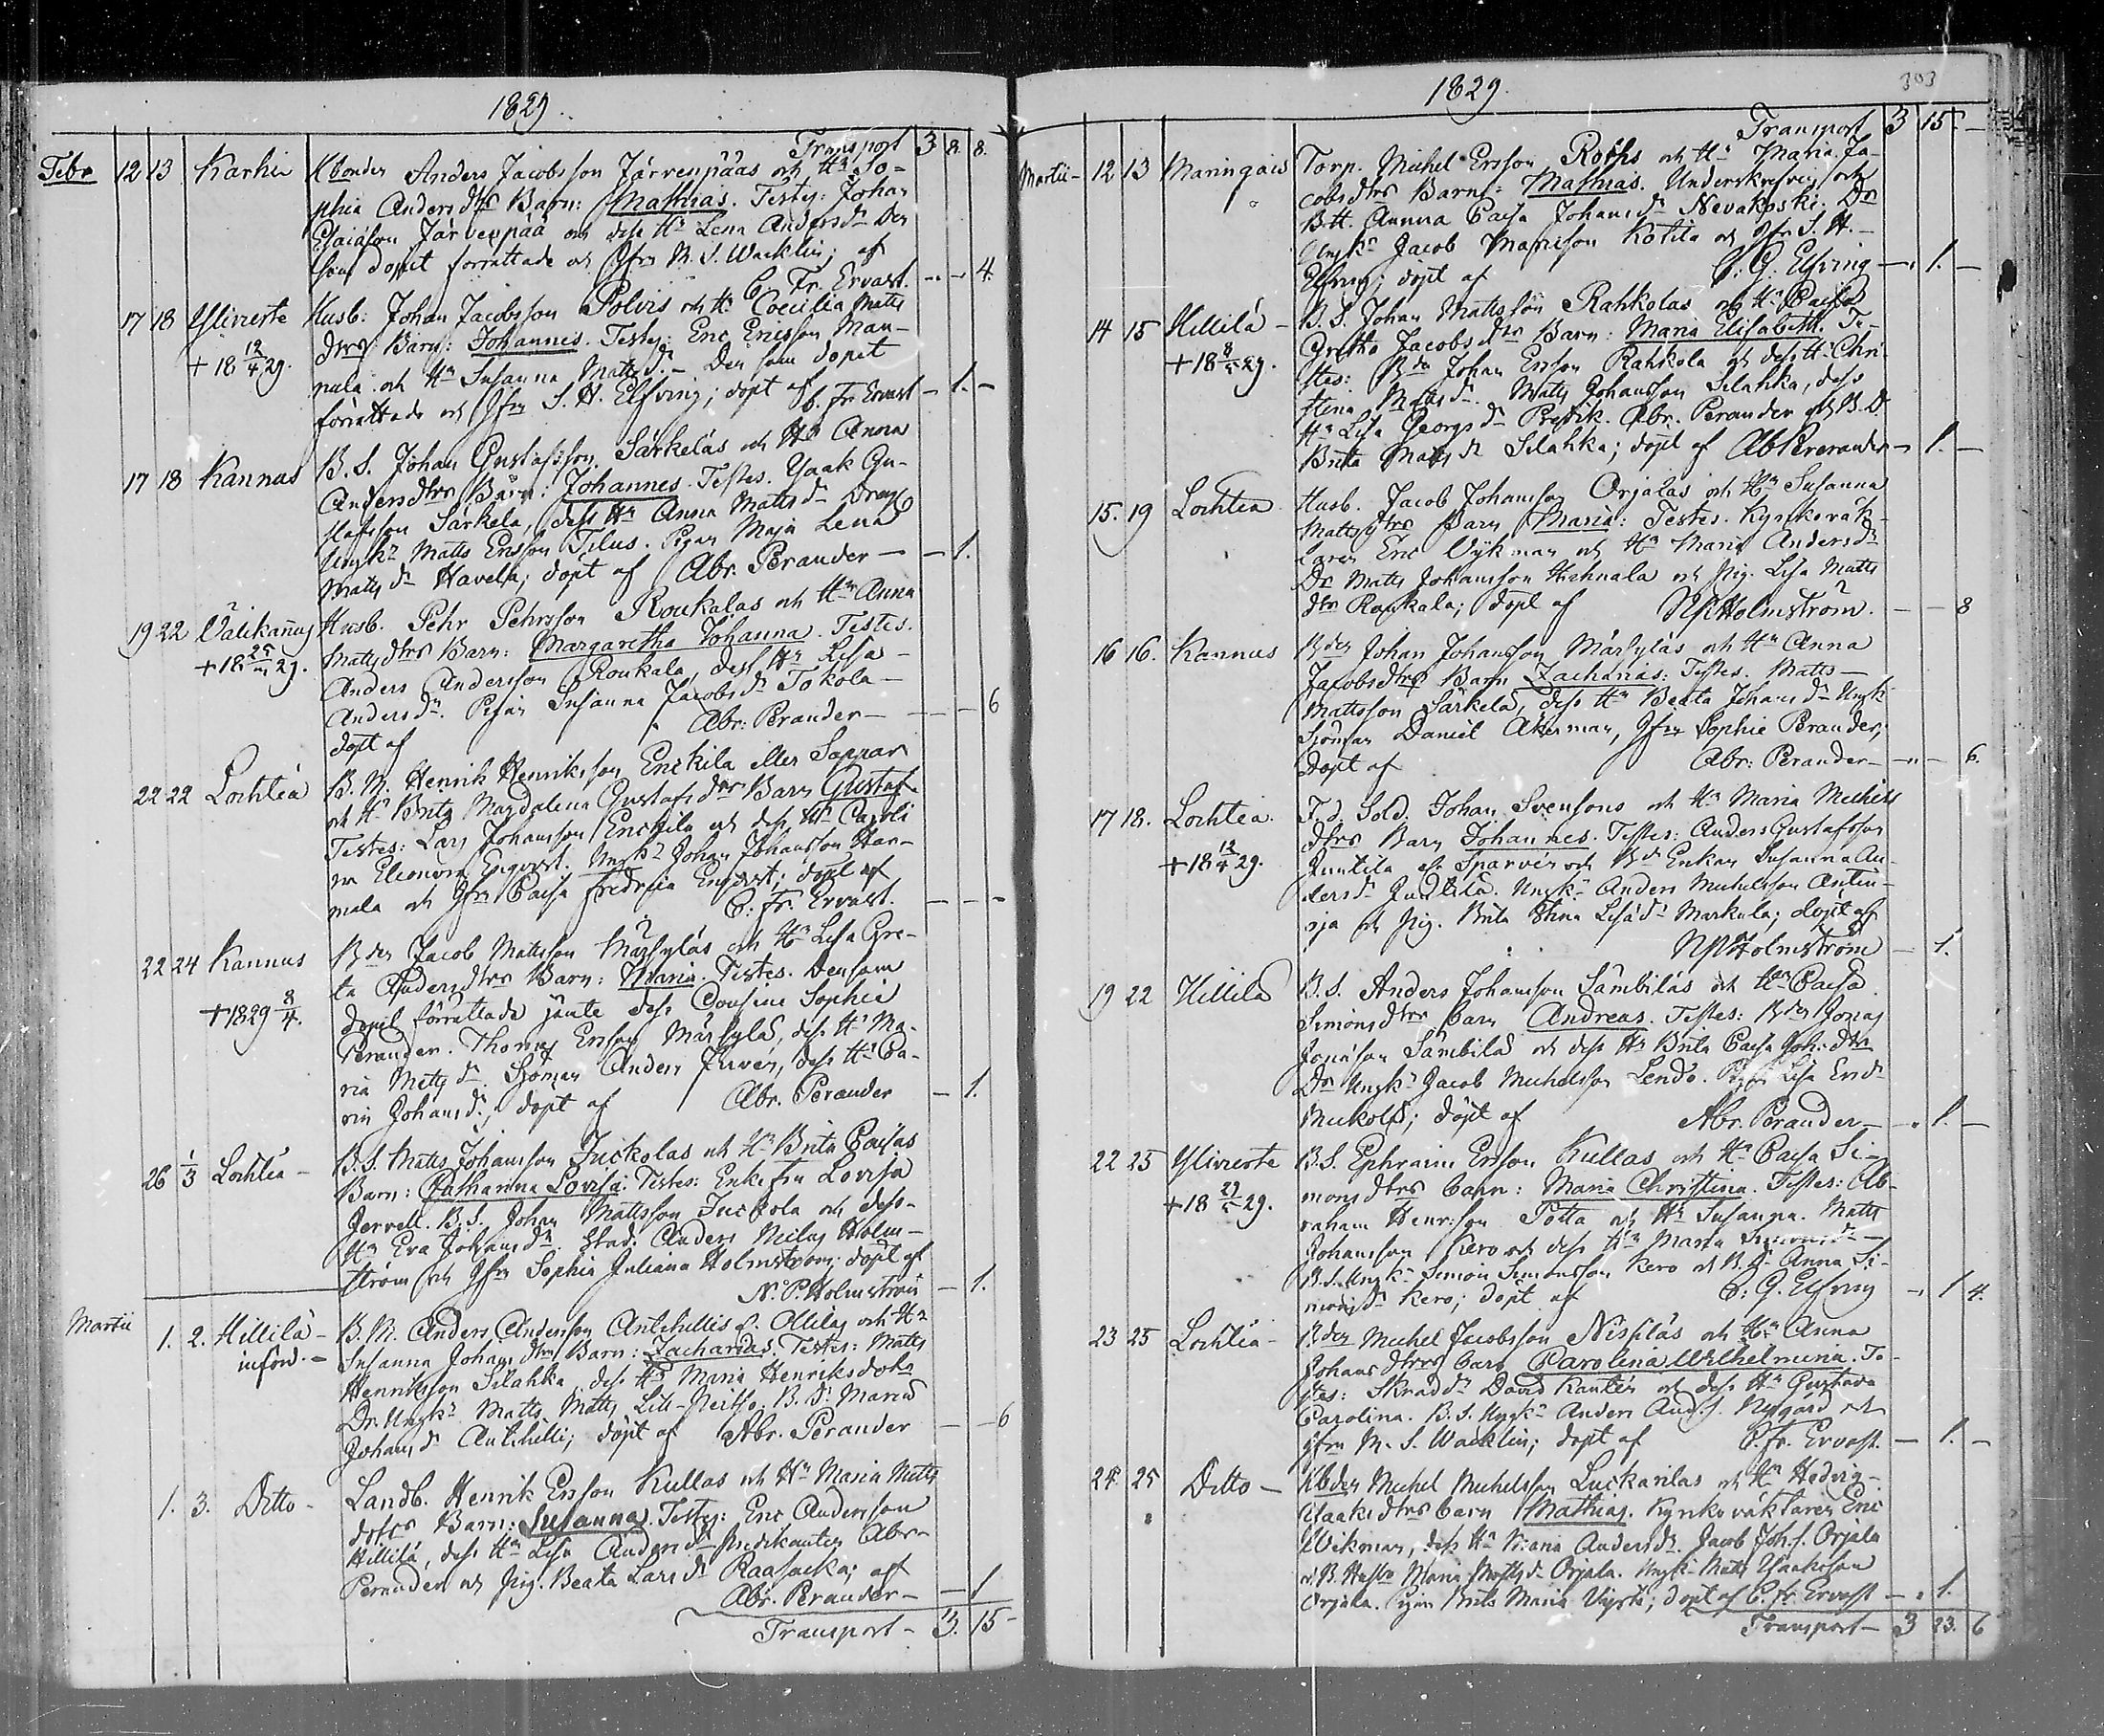 1829.
Transport 3 8. 8.
Febr 12 13 Karhi Kbonden Anders Jacobsson Järvenpääs och Hu So-
phia Andersdtrs Barn: Mathias. Testes: Johan
Esaiasson Järvenpää och dess Hu Lena Andersdr Den
som dopet förrättade och Jfrn M. S. Wacklin; af
C. Fr. Ervast. - - 4.
17 18 Ylivieste Husb: Johan Jacobsson Polvis och Hu Coecilia Matts
+ 18 12/4 29. dtrs Barn: Johannes. Testes: Eric Ericsson Man-
nula och Hu Susanna Mattsdr. - Den som dopet
förättade och Jfrn S. H. Elfving; döpt af C. Fr Ervast - 1. -
17 18 Kannus B. S. Johan Gustafsson Särkeläs och Hu Anna
Andersdtrs Barn: Johannes. Testes. Ysaak Gu-
stafsson Särkelä, dess Hu Anna Mattsdr Dreng
Ungkn Matts Ersson Tilus. Pigan Maja Lena
Mattsdr Havela; döpt af Abr. Perander - - 1.
19 22 Välikannus Husb. Pehr Pehrsson Roukalas och Hu Anna
+ 18 25/ 29. Mattsdtrs Barn: Margaretha Johanna. Testes.
Anders Andersson Roukala, dess Hu Lisa
Andersdr. Pigan Susanna Jacobsdr Tokola -
döpt af Abr: Perander - - - 6
22 22 Lochteå B. M. Henrik Henriksson Enckila eller Sappar
och Hu Brita Magdalena Gustafsdtrs Barn Gustaf
Testes: Lars Johansson Enckila och dess Hu Caroli
na Eleonora Enqvist. Ungkn Johan Johansson Han-
mala och Jfrn Caisa Fredrica Enqvist; döpt af
C. Fr. Ervast. - - -
22 24 Kannus Bden Jacob Mattsson Märsyläs och Hu Lisa Gre-
+ 1829 8/4. ta Andersdtrs Barn: Maria. Testes. Den som
dopet förrättade jämte dess Cousine Sophia
Perander. Thomas Ersson Märsylä, dess Hu Ma-
ria Mattsdr. Sjöman Anders Furvén, dess Hu Ca-
rin Johansdr; döpt af Abr. Perander - 1.
26 1/3 Lochteå - B. S. Matts Johansson Juckolas och Hu Brita Caisas
Barn: Catharina Lovisa: Testes: Enkefru Lovisa
Jervell. B. S. Johan Mattsson Juckola och dess
Hu Eva Johansdr. Stud. Anders Nilas Holm-
ström och Jfrn Sophia Juliana Holmström; döpt af
N. P. Holmström - 1.
Martii 1. 2. Hillilä - B. M. Anders Andersson Antihillis l. Ollilas och Hu
inford. - Susanna Johansdtrs Barn: Zacharias. Testes: Matts
Henriksson Silahka, dess Hu Maria Henriksdotr
Dr. Ungkn Matts Matts. Lill-Peitso. B. Dr Maria
Johansdr Antihilli; döpt af Abr. Perander - - 6
1. 3. Ditto - Landb. Henrik Ersson Kullas och Hu Maria Matts
dotrs Barn: Susanna. Testes: Eric Andersson
Hillilä, dess Hu Lisa Andersdr Predikanten Abr.
Perander och Pig. Beata Larsdr Raasacka; af
Abr. Perander - - 1
Transport - 3. 15 -
1829.
303
Transport 3 15 -
Martii - 12 13 Maringais Torp. Michel Ersson Roths och Hu Maria Ja-
cobsdtrs Barn: Mathias. Underskrefven och
B. H. Annna Caisa Johansdr Nevakoski. Dr
Ungkn Jacob Mattsson Kotila och Jfr S. H. -
Elfving; döpt af C. G. Elfving - 1. -
14 15 Hillilä - B. S. Johan Mattsson Rahkolas och Hu Caisa
+ 18 8/ 29. Gretha Jacobsdtrs Barn: Maria Elisabeth. Te-
stes: Bden Johan Ersson Rahkola och dess Hu Chri
stina Mattsdr. Matts Johansson Silahka, dess
Hu Lisa Georgsdr Predik. Abr. Perander och B. D.
Brita Mattsdr Silahka; döpt af Ab Pererander - 1. -
15. 19 Lochteå Husb. Jacob Johansson Orjalas och Hu Susanna
Mattsdtrs Barn Maria: Testes. Kyrkoväk-
taren Eric Vykman och Hu Maria Andersdr
Dr Matts Johansson Hihnala och Pig. Lisa Matts
dtr Roukala; döpt af NP Holmström. - - 8
16 16. Kannus Bden Johan Johansson Märsyläs och Hu Anna
Jacobsdtrs Barn Zacharias: Testes. Matts -
Mattsson Särkelä, dess Hu Beata Johansdr Ungk.
Sjöman Daniel Åkerman, Jfrn Sophie Perander;
döpt af Abr: Perander - - 6.
17 18. Lochteå. F. d. Sold. Johan Svensons och Hu Maria Michels
+ 18 12/4 29. dtrs Barn Johannes. Testes: Anders Gustafsson
Juntila eller Sparvén och Bde Enkan Susanna An-
dersdr Juntila. Ungkn Anders Michelsson Antin-
oja och Pig. Brita Stina Lisädr Markula; döpt af
NP Holmström - 1.
19 22 Hillilä B. S. Anders Johansson Sämbiläs och Hu Caisa
Simonsdtrs barn Andreas. Testes: Bden Jonas
Jonasson Sämbilä och dess Hu Brita Caisa Joh:dtr
Dr Ungkn Jacob Michelsson Lendo. Pigan Lisa Ersdr
Muckola; döpt af Abr. Perander - 1. -
22 25 Ylivieste B. S. Ephraim Ersson Kullas och Hu Caisa Si-
+ 18 29/ 29. monsdtrs barn: Maria Christina. Testes: Ab-
raham Henrsson Potta och Hu Susanna. Matts
Johansson Kero och dess Hu Maria Simonsdr -
B. S. Ungkn Simon Simonsson Kero och B. D. Anna Si-
monsdr Kero; döpt af C: G. Elfving - 1 4.
23 25 Lochteå - Bden Michel Jacobsson Niskas och Hu Anna
Johansdtrs barn Carolina Wilhelmina. Te-
stes: Skradd. David Kantén och dess Hu Gustava
Carolina. B. S. Ungkn Anders And. s. Nygård och
Jfrn M. S. Wacklin; döpt af C. Fr. Ervast. - 1. -
24. 25 Ditto - Kbden Michel Michelsson Luckarilas och Hu Hedvig
Ysaaksdtrs barn Mathias. Kyrkoväktaren Eric
Wikman, dess Hu Maria Andersdr. Jacob Joh. s. Orjala
o. B. Hustr Maria Mattsdr Orjala. Ungkn Matts Ysaaksson
Orjala. Pigan Brita Maria Vigsta; döpt af C. Fr. Ervast - 1.
Transport - 3 23. 6